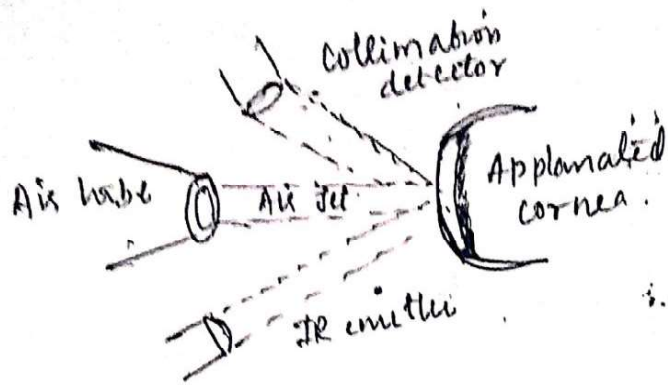 Collimation
detector
Air tube
Air Jet
Applanated
cornea.
IR emitter